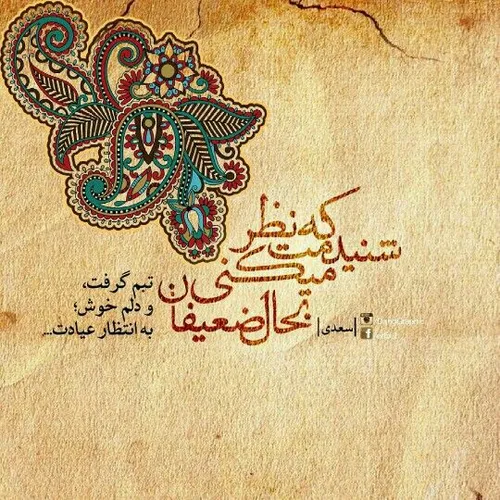 شنیدمت که نظر
میکنی
بحال ضعیفان
| سعدی |
تبم گرفت،
و دلم خوش؛
به انتظار عیادت...